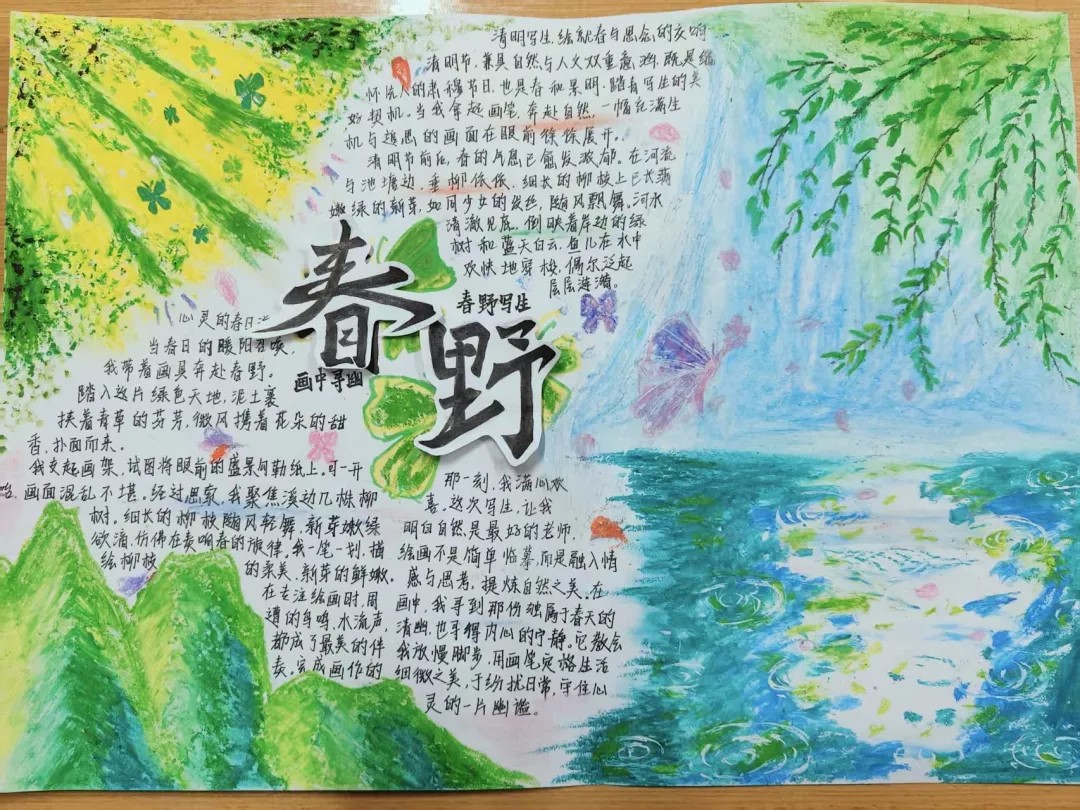 清明写生,绘就春与思念的交响
清明节,兼具自然与人文双重意涵,既是缅
怀先人的肃穆节日,也是春和景明,踏青写生的美
好契机。当我拿起画笔,奔赴自然,一幅充满生
机与追思的画面在眼前徐徐展开。
清明节前后,春的气息已愈发浓郁。在河流
与池塘边,垂柳依依,细长的柳枝上已长满
嫩绿的新芽,如同少女的发丝,随风飘舞。河水
清澈见底,倒映着岸边的绿
树和蓝天白云,鱼儿在水中
欢快地穿梭,偶尔泛起
层层涟漪。
春野
春野写生
画中寻幽
心灵的春日
当春日的暖阳召唤,
我带着画具奔赴春野。
踏入这片绿色天地,泥土裹
挟着青草的芬芳,微风携着花朵的甜
香,扑面而来。
我支起画架,试图将眼前的盛景勾勒纸上。可一开
始,画面混乱不堪。经过思索,我聚焦溪边几株柳
树,细长的柳枝随风轻舞,新芽嫩绿
欲滴,仿佛在奏响春的旋律。我一笔一划,描
绘柳枝的柔美,新芽的鲜嫩。
在专注绘画时,周
遭的鸟鸣,水流声
都成了最美的伴
奏。完成画作的
那一刻,我满心欢
喜。这次写生,让我
明白自然是最好的老师,
绘画不是简单临摹,而是融入情
感与思考,提炼自然之美。在
画中,我寻到那份独属于春天的
清幽,也寻得内心的宁静。它教会
我放慢脚步,用画笔定格生活
细微之美,于纷扰日常,守住心
灵的一片幽谧。